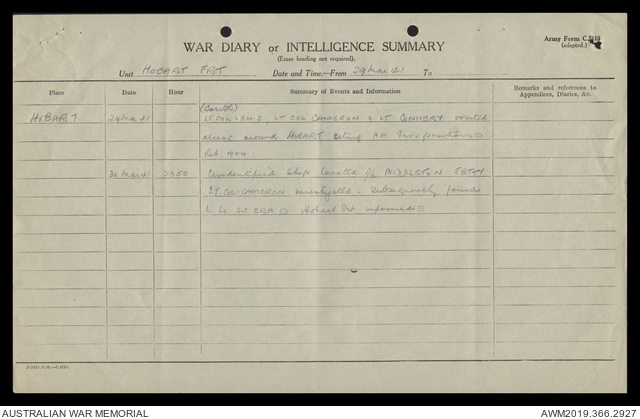 WAR DIARY or INTELLIGENCE SUMMARY
Army Form C.2118
(adapted.)
(Erase heading not required).
Unit HOBART Date and Time.—From 29 Mar 41 To
Place Date Hour Summary of Events and Information Remarks and references to Appendices, Diaries, &c.
(Contd)
HOBART 29 Mar 41 LT COL LEWIS, LT COL CAMERON & LT visited
areas around HOBART AA Gun positions
1900.
30 Mar 41 2350 Unidentified Ship located off MIDDLETON JETTY
LT COL CAMERON investigated – Subsequently found
to be Hobart informed
AUSTRALIAN WAR MEMORIAL
AWM2019.366.2927